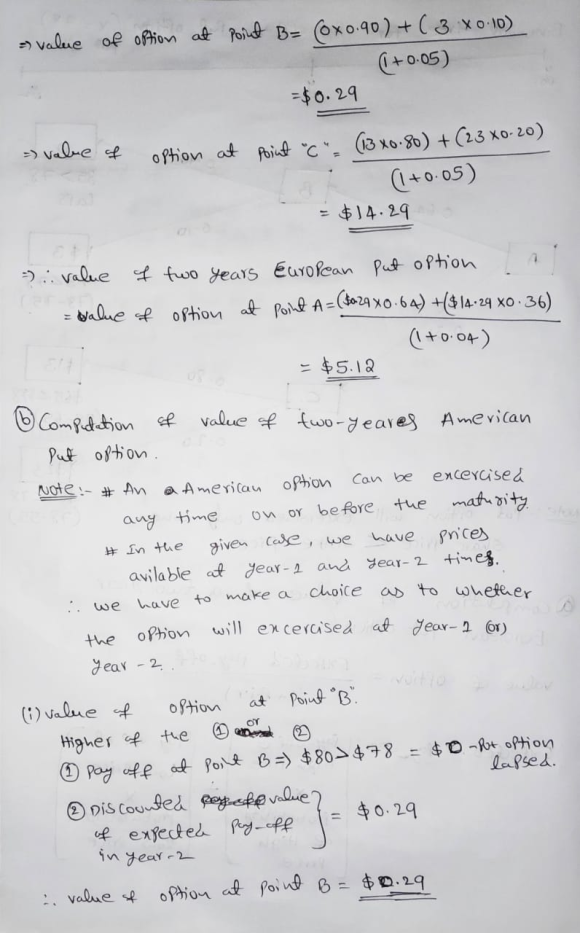 ⇒ value of option at Point B = (0×0.90) + (3×0.10)
(1+0.05)
= $0.29
⇒ value of option at Point "C" = (13×0.80) + (23×0.20)
(1+0.05)
= $14.29
⇒ ∴ value of two years European Put option
= value of option at Point A = ($0.29×0.64) + ($14.29×0.36)
(1+0.04)
= $5.12
ⓑ Computation of value of two-yeares American
Put option.
Note:- # An American option can be excercised
any time on or before the maturity
# In the given case, we have prices
avilable at year-1 and year-2 times.
∴ we have to make a choice as to whether
the option will excercised at year-1 (or)
year-2.
(i) value of option at Point "B".
Higher of the ① or ②
① Pay off at Point B ⇒ $80 > $78 = $0 - Put option
lapsed.
② Discounted value
of expected Pay-off } = $0.29
in year-2
∴ value of option at Point B = $0.29